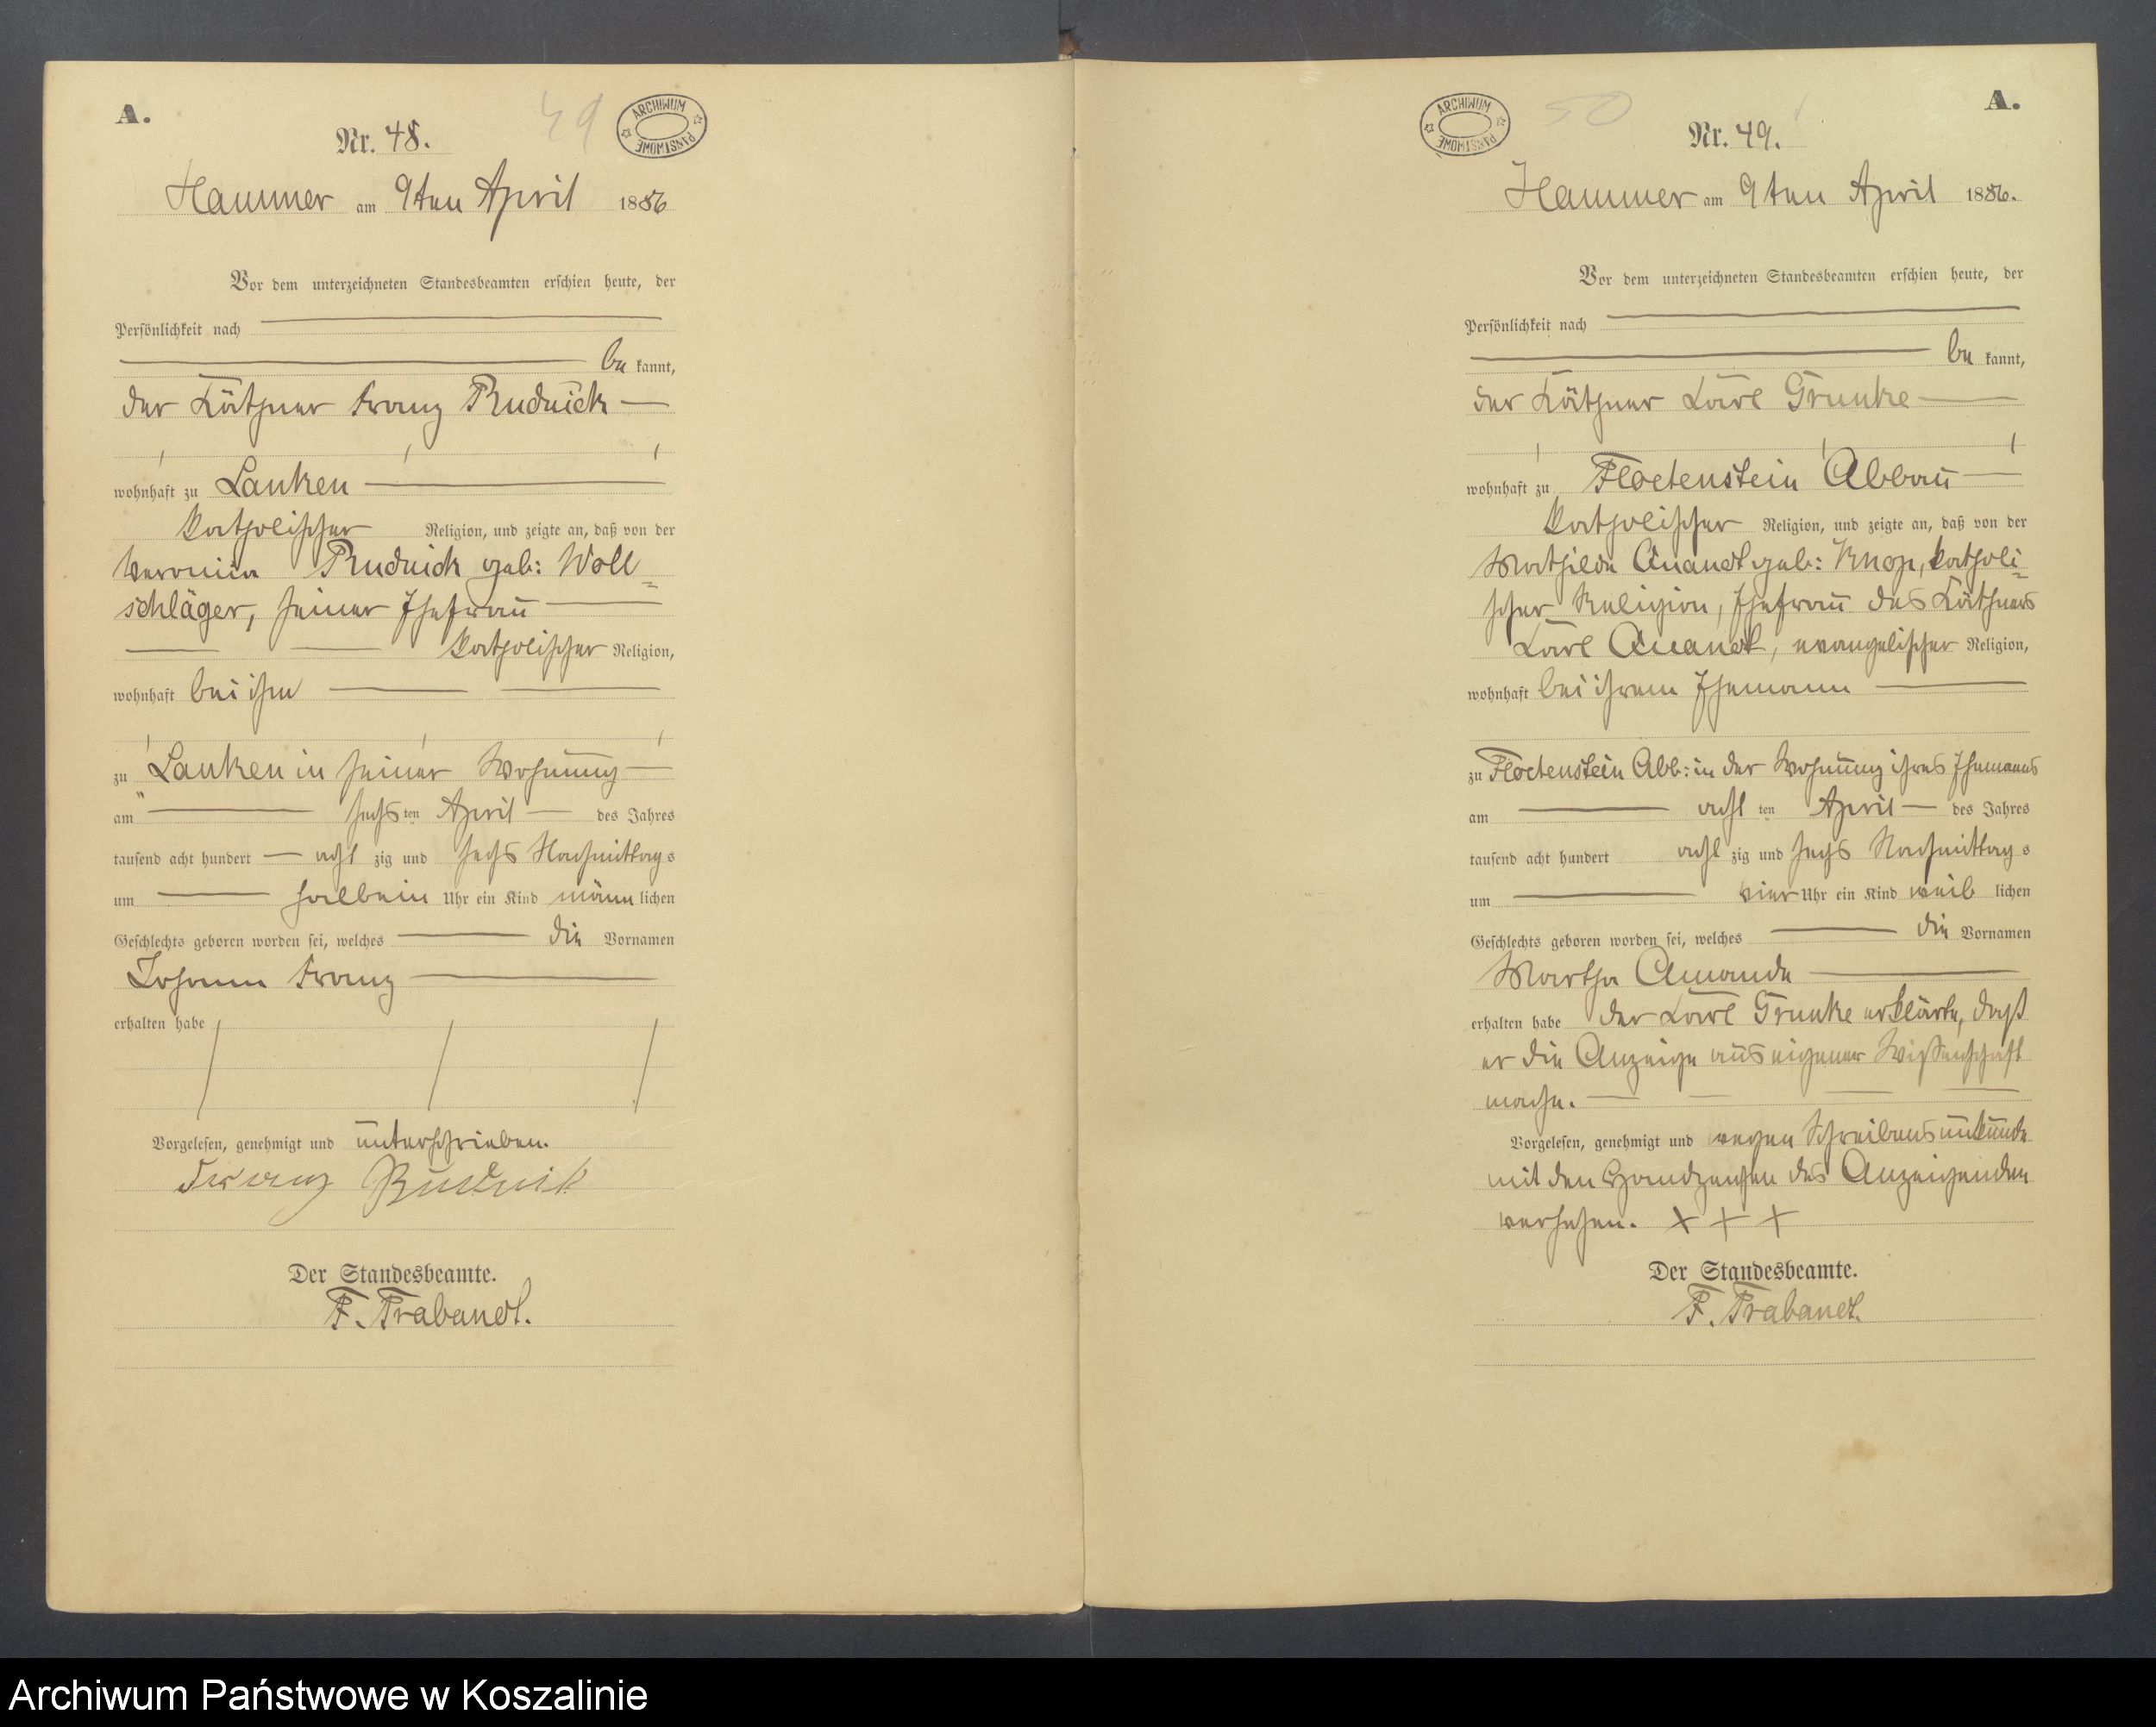 A.
49
ARCHIWUM PAŃSTWOWE
Nr. 48.
Hammer am 9ten April 1886
Vor dem unterzeichneten Standesbeamten erschien heute, der
Persönlichkeit nach
be kannt,
der Käthner Franz Rudnick
wohnhaft zu Lanken
katholischer Religion, und zeigte an, daß von der
Veronica Rudnick geb: Woll=
schläger, seiner Ehefrau
katholischer Religion,
wohnhaft bei ihm
zu Lanken in seiner Wohnung
am sechs ten April des Jahres
tausend acht hundert acht zig und sechs Nachmittags
um halb ein Uhr ein Kind männ lichen
Geschlechts geboren worden sei, welches die Vornamen
Johann Franz
erhalten habe
Vorgelesen, genehmigt und unterschrieben.
Franz Rudnik
Der Standesbeamte.
F. Trabandt.
A.
50
ARCHIWUM PAŃSTWOWE
Nr. 49.
Hammer am 9ten April 1886.
Vor dem unterzeichneten Standesbeamten erschien heute, der
Persönlichkeit nach
be kannt,
der Käthner Carl Grunke
wohnhaft zu Floetenstein Abbau
katholischer Religion, und zeigte an, daß von der
Mathilde Quandt geb: Knop, katholi=
scher Religion, Ehefrau des Käthners
Carl Quandt, evangelischer Religion,
wohnhaft bei ihrem Ehemann
zu Floetenstein Abb: in der Wohnung ihres Ehemanns
am acht ten April des Jahres
tausend acht hundert acht zig und sechs Nachmittags
um vier Uhr ein Kind weib lichen
Geschlechts geboren worden sei, welches die Vornamen
Martha Amande
erhalten habe der Carl Grunke erklärte, daß
er die Anzeige aus eigener Wissenschaft
mache.
Vorgelesen, genehmigt und wegen Schreibensunkunde
mit den Handzeichen des Anzeigenden
versehen. + + +
Der Standesbeamte.
F. Trabandt.
Archiwum Państwowe w Koszalinie